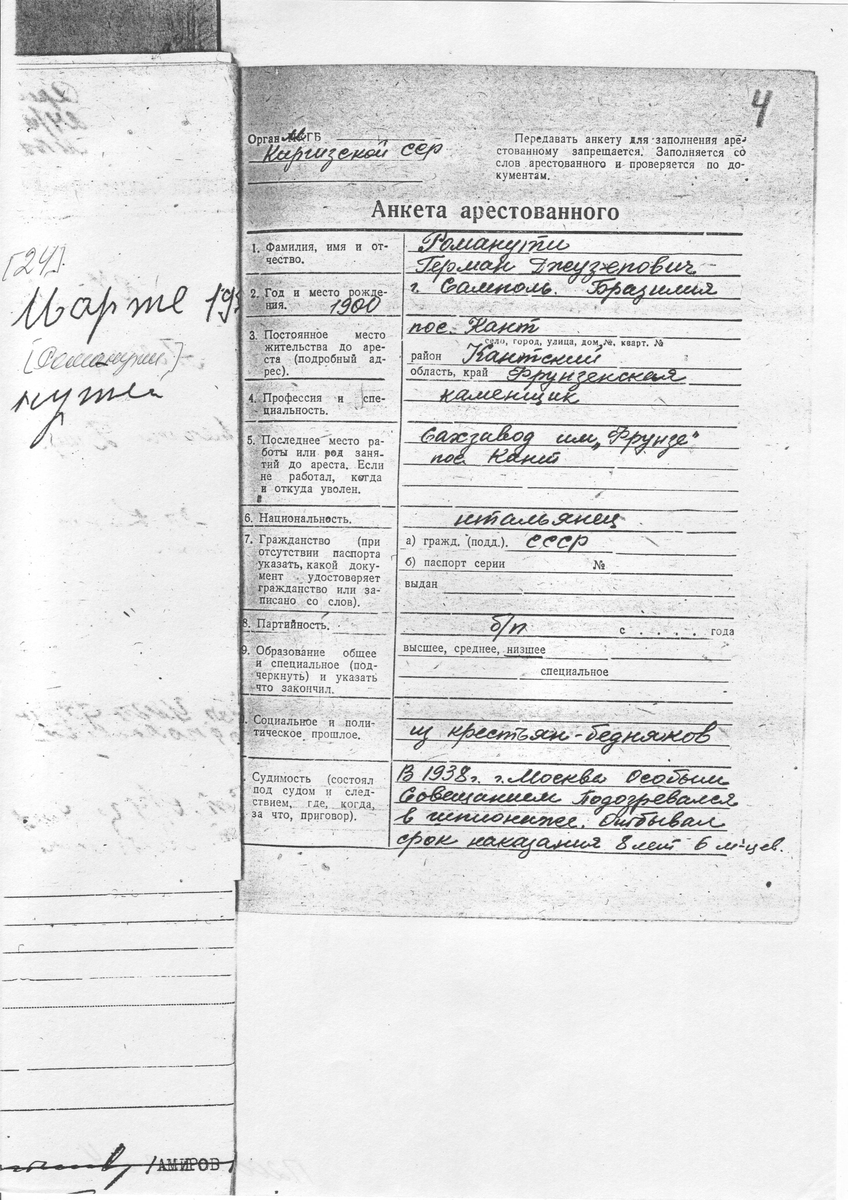 4
Орган МГБ
Киргизской ССР
Передавать анкету для заполнения аре-
стованному запрещается. Заполняется со
слов арестованного и проверяется по до-
кументам.
Анкета арестованного
1. Фамилия, имя и от-
чество.
Романути
Герман Джузепович
2. Год и место рожде-
ния. 1900
г. Самполь. Бразилия
3. Постоянное место
жительства до аре-
ста (подробный ад-
рес).
пос. Кант
село, город, улица, дом №, кварт. №
район Кантский
область, край Фрунзенская
4. Профессия и спе-
циальность.
каменщик
5. Последнее место ра-
боты или род заня-
тий до ареста. Если
не работал, когда
и откуда уволен.
Сахзавод им „Фрунзе"
пос Кант
6. Национальность.
итальянец
7. Гражданство (при
отсутствии паспорта
указать, какой доку-
мент удостоверяет
гражданство или за-
писано со слов).
а) гражд. (подд.). СССР
б) паспорт серии №
выдан
8. Партийность.
б/п с . . . . года
9. Образование общее
и специальное (под-
черкнуть) и указать
что закончил.
высшее, среднее, низшее
специальное
Социальное и поли-
тическое прошлое.
из крестьян-бедняков
Судимость (состоял
под судом и след-
ствием, где, когда,
за что, приговор).
В 1938г. г. Москва Особым
Совещанием Подозревался
в шпионаже. Отбывал
срок наказания 8 лет 6 м-цев.
[24]
Марте 19
[Романути]
нутей
/АМИРОВ/